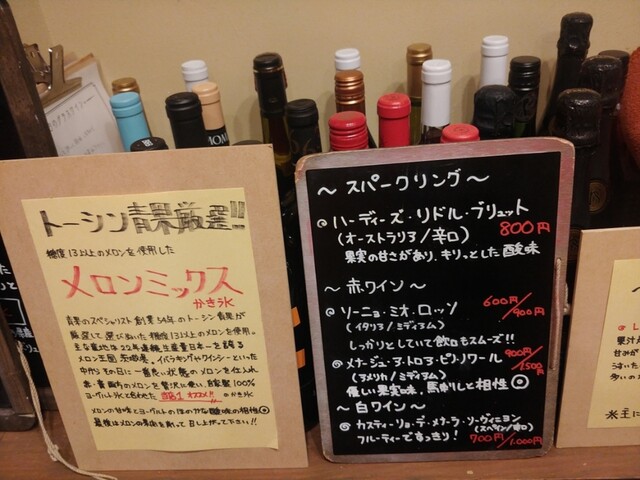 トーシン青果厳選!!
糖度13以上のメロンを使用した
メロンミックス
かき氷
青果のスペシャリスト創業54年のトーシン青果が
厳選して選びぬいた糖度13以上のメロンを使用。
主な産地は22年連続生産量日本一を誇る
メロン王国茨城県。イバラキングやクインシーといった
中からその日に一番良い状態のメロンを仕入れ
赤・青両方のメロンを贅沢に使い、自家製100%
ヨーグルト氷と合わせた 当店1オススメ!! のかき氷
メロンの甘味とヨーグルトのほのかな酸味の相性◎
最後はメロンの果肉を
~スパークリング~
◎ハーディーズ・リドル・ブリュット
(オーストラリア/辛口) 800円
果実の甘さがあり、キリッとした酸味
~赤ワイン~
◎ソーニョ・ミオ・ロッソ 600円/900円
(イタリア/ミディアム)
しっかりとしていて飲口もスムーズ!!
◎メナージュ・ア・トロア・ピノ・ノワール 900円/1.500円
(アメリカ/ミディアム)
優しい果実味、馬肉しと相性◎
~白ワイン~
◎カスティーリョ・デ・メナーラ・ソーヴィニヨン
(スペイン/辛口)
フルーティーですっきり! 700円/1.000円